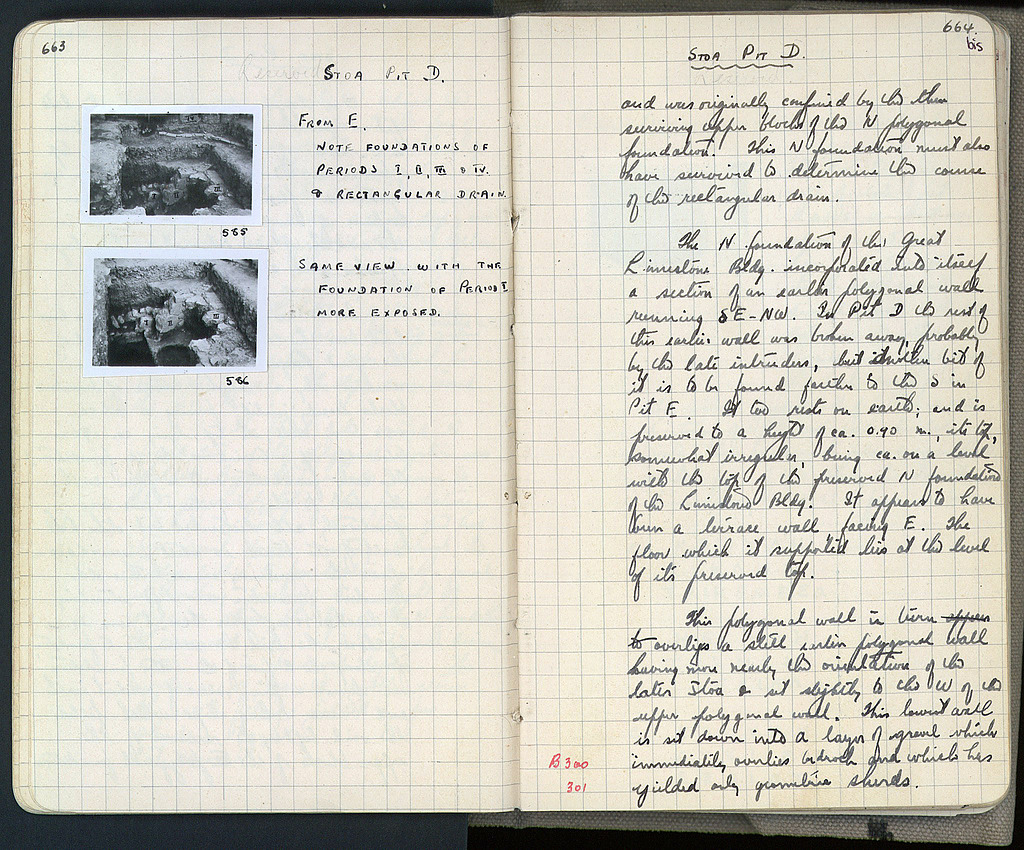 663
STOA PIT D.
FROM E.
NOTE FOUNDATIONS OF
PERIODS I, II, III & IV.
& RECTANGULAR DRAIN.
585
SAME VIEW WITH THE
FOUNDATION OF PERIOD I
MORE EXPOSED.
586
664
bis
STOA PIT D.
and was originally confined by the then
surviving upper blocks of the N polygonal
foundation. This N foundation must also
have survived to determine the course
of the rectangular drain.
The N foundation of the Great
Limestone Bldg. incorporated into itself
a section of an earlier polygonal wall
running SE-NW. In Pit D the rest of
this earlier wall was broken away, probably
by the late intruders, but another bit of
it is to be found farther to the S in
Pit E. It too rests on earth; and is
preserved to a height of ca. 0.90 m., its top,
somewhat irregular, being ca. on a level
with the top of the preserved N foundation
of the Limestone Bldg. It appears to have
been a terrace wall facing E. The
floor which it supported lies at the level
of its preserved top.
This polygonal wall in turn appears
to overlies a still earlier polygonal wall
having more nearly the orientation of the
later Stoa & set slightly to the W of the
upper polygonal wall. This lowest wall
is set down into a layer of gravel which
immediately overlies bedrock and which has
yielded only geometric sherds.
B 300
301